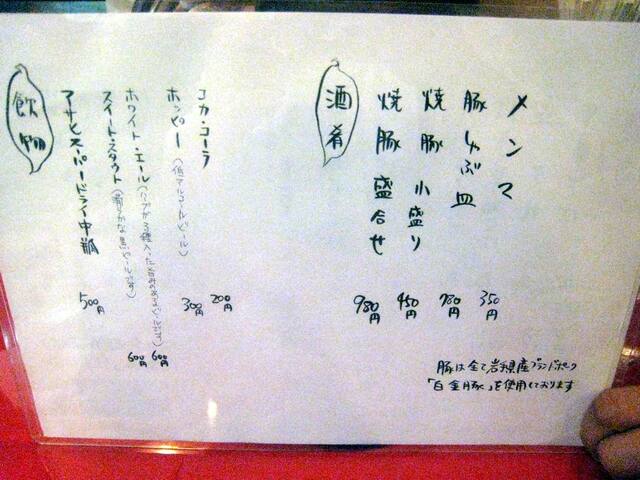 メンマ 350円
豚しゃぶ皿 780円
焼豚 小盛り 450円
焼豚 盛合せ 980円
酒肴
豚は全て岩手県産ブランドポーク
「白金豚」を使用しております
コカ・コーラ 200円
ホッピー(低アルコールビール) 300円
ホワイト・エール 600円
スイート・スタウト 600円
アサヒスーパードライ中瓶 500円
飲物